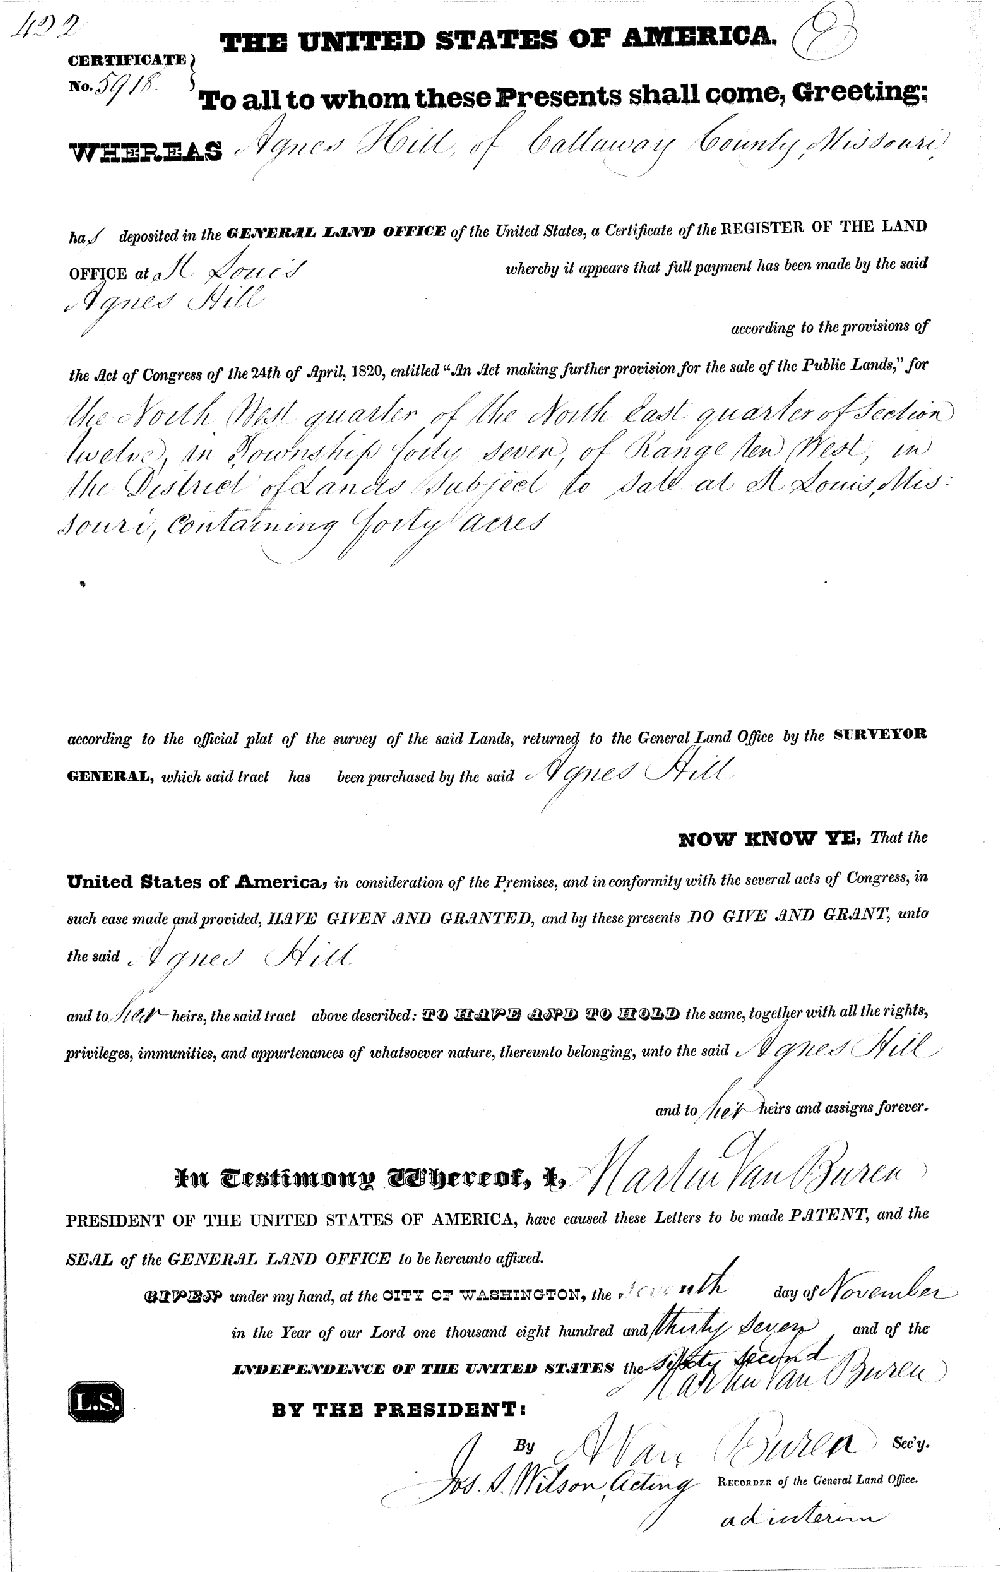 422
THE UNITED STATES OF AMERICA.
CERTIFICATE
No. 5918.
To all to whom these Presents shall come, Greeting:
WHEREAS Agnes Hill, of Callaway County, Missouri,
has deposited in the GENERAL LAND OFFICE of the United States, a Certificate of the REGISTER OF THE LAND
OFFICE at St Louis whereby it appears that full payment has been made by the said
Agnes Hill
according to the provisions of
the Act of Congress of the 24th of April, 1820, entitled “An Act making further provision for the sale of the Public Lands,” for
the North West quarter of the North East quarter of Section
twelve, in Township forty seven, of Range ten West, in
the District of Lands subject to sale at St Louis, Mis:
souri, containing forty acres
according to the official plat of the survey of the said Lands, returned to the General Land Office by the SURVEYOR
GENERAL, which said tract has been purchased by the said Agnes Hill
NOW KNOW YE, That the
United States of America, in consideration of the Premises, and in conformity with the several acts of Congress, in
such case made and provided, HAVE GIVEN AND GRANTED, and by these presents DO GIVE AND GRANT, unto
the said Agnes Hill
and to her heirs, the said tract above described: TO HAVE AND TO HOLD the same, together with all the rights,
privileges, immunities, and appurtenances of whatsoever nature, thereunto belonging, unto the said Agnes Hill
and to her heirs and assigns forever.
In Testimony Whereof, I, Martin Van Buren
PRESIDENT OF THE UNITED STATES OF AMERICA, have caused these Letters to be made PATENT, and the
SEAL of the GENERAL LAND OFFICE to be hereunto affixed.
GIVEN under my hand, at the CITY OF WASHINGTON, the seventh day of November
in the Year of our Lord one thousand eight hundred and thirty seven and of the
INDEPENDENCE OF THE UNITED STATES the sixty second
Martin Van Buren
L.S.
BY THE PRESIDENT:
By A Van Buren Sec'y.
Jos. S. Wilson, acting RECORDER of the General Land Office.
ad interim